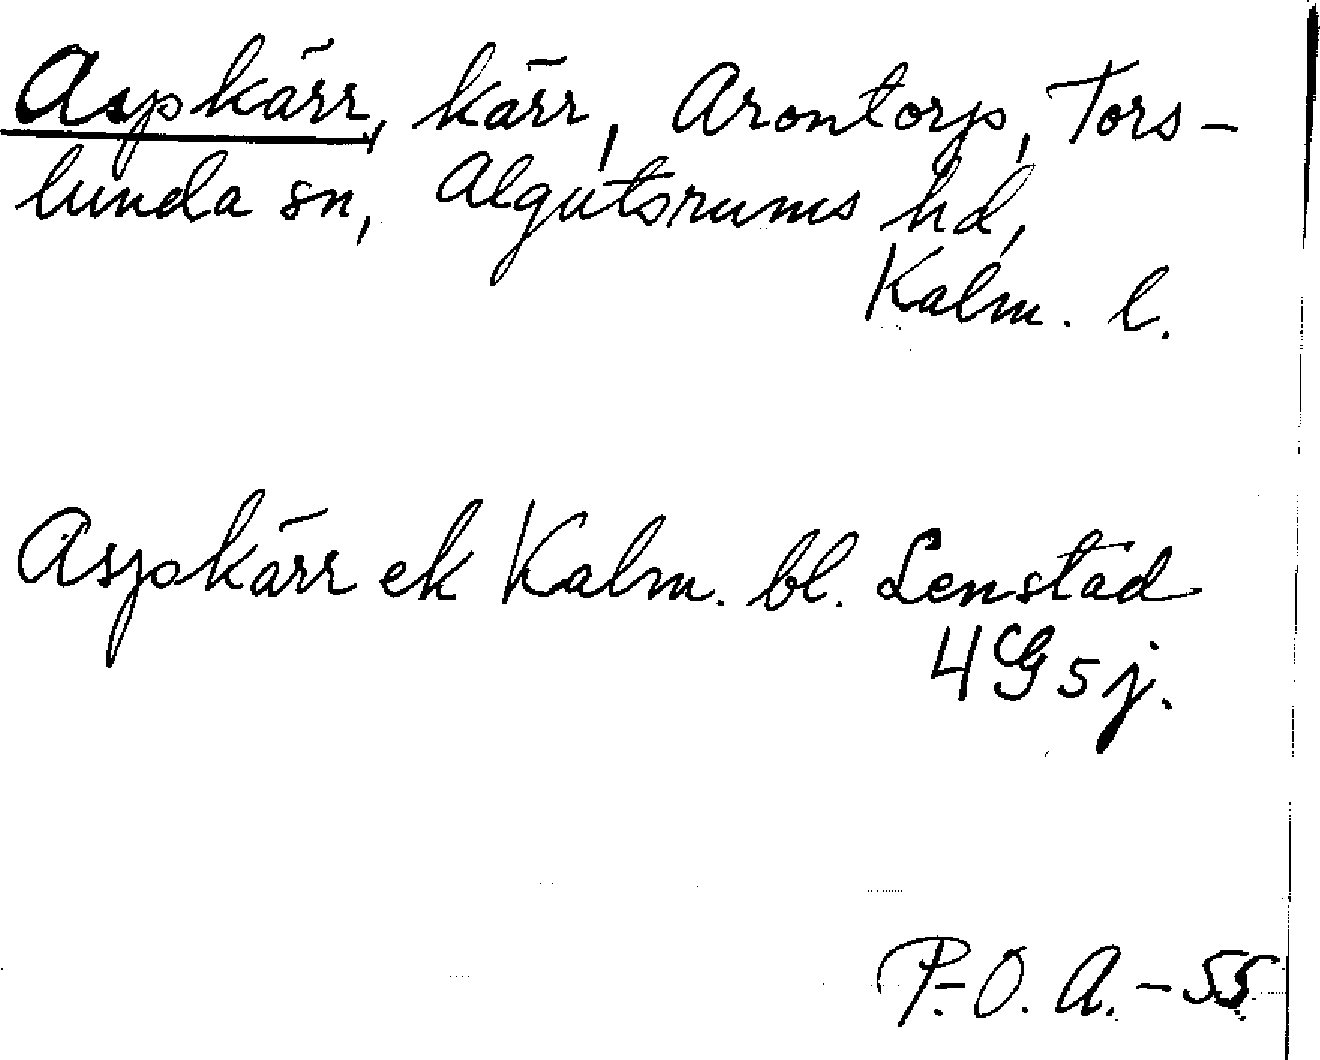 Aspkärr, kärr, Arontorp, Tors-
lunda sn, Algutsrums hd,
Kalm. l.
Aspkärr ek Kalm. bl. Lenstad
4G5j.
P.-O. A. - 55